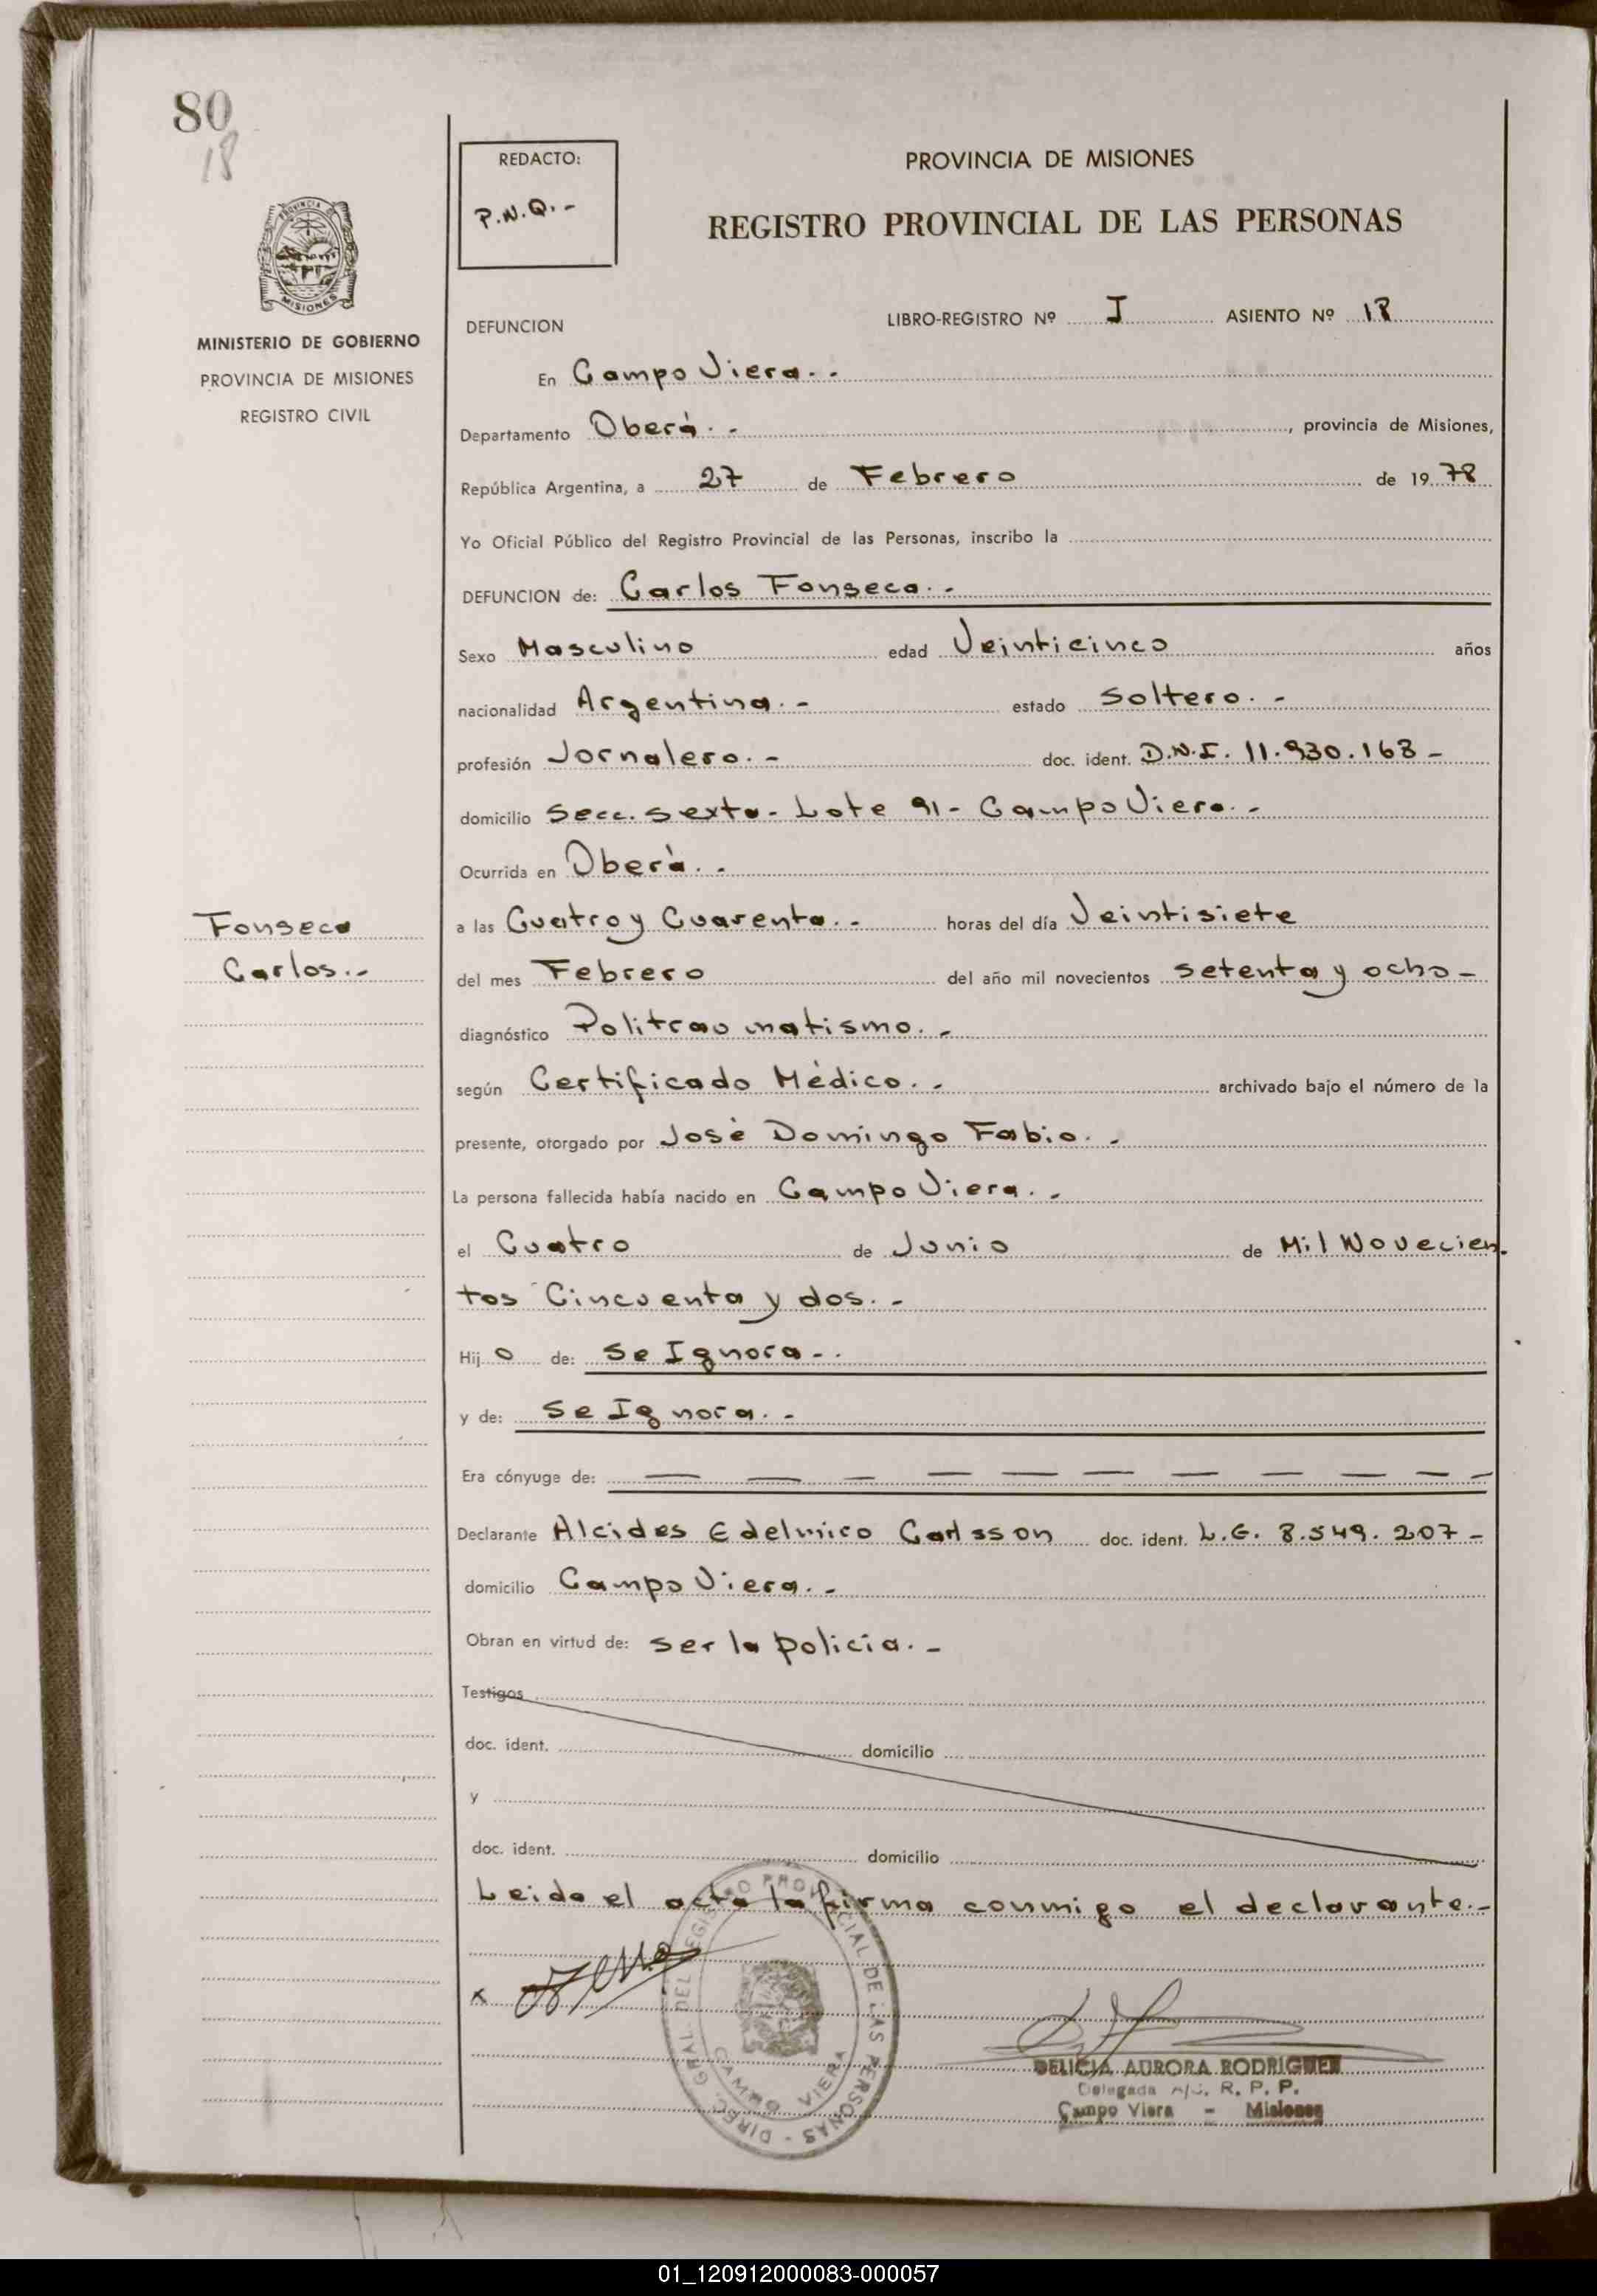 80
18
REDACTO:
P.N.Q. -
PROVINCIA DE MISIONES
REGISTRO PROVINCIAL DE LAS PERSONAS
PROVINCIA DE
MISIONES
MINISTERIO DE GOBIERNO
PROVINCIA DE MISIONES
REGISTRO CIVIL
DEFUNCION LIBRO-REGISTRO Nº I ASIENTO Nº 18
En Campo Viera. -
Departamento Oberá. - , provincia de Misiones,
República Argentina, a 27 de Febrero de 1978
Yo Oficial Público del Registro Provincial de las Personas, inscribo la
DEFUNCION de: Carlos Fonseca. -
Sexo Masculino edad Veinticinco años
nacionalidad Argentina. - estado Soltero. -
profesión Jornalero. - doc. ident. D.N.I. 11.930.168 -
domicilio Secc. Sexta - Lote 91 - Campo Viera. -
Ocurrida en Oberá. -
Fonseca
Carlos. -
a las Cuatro y Cuarenta. - horas del día Veintisiete
del mes Febrero del año mil novecientos setenta y ocho -
diagnóstico Politraumatismo. -
según Certificado Médico. - archivado bajo el número de la
presente, otorgado por José Domingo Fabio. -
La persona fallecida había nacido en Campo Viera. -
el Cuatro de Junio de Mil Novecien
tos Cincuenta y dos. -
Hijo de: Se Ignora -.
y de: Se Ignora. -
Era cónyuge de: — — — — — — — — — — —
Declarante Alcides Edelmiro Carlsson doc. ident. L.E. 8.549.207 -
domicilio Campo Viera. -
Obran en virtud de: ser la policía. -
Testigos
doc. ident. domicilio
y
doc. ident. domicilio
Leida el acta la firma conmigo el declarante. -
x
DIREC. GRAL. DEL REGISTRO PROVINCIAL DE LAS PERSONAS -
CAMPO VIERA
DELICIA AURORA RODRIGUEZ
Delegada R. P. P.
Campo Viera - Misiones
01_120912000083-000057